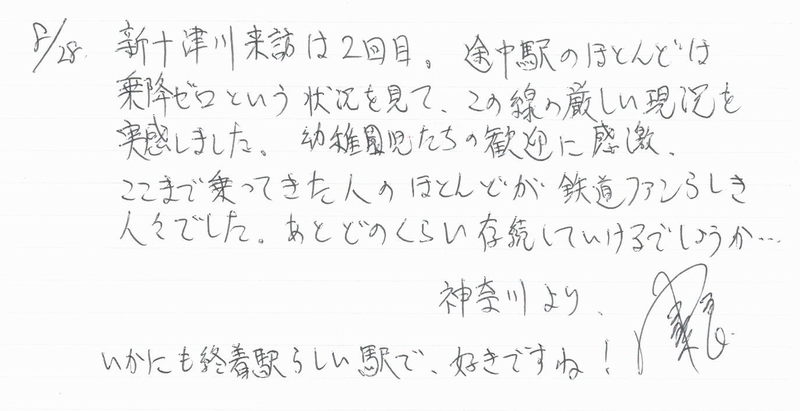 8/28. 新十津川来訪は2回目。途中駅のほとんどは
乗降ゼロという状況を見て、この線の厳しい現況を
実感しました。幼稚園児たちの歓迎に感激、
ここまで乗ってきた人のほとんどが鉄道ファンらしき
人々でした。あとどのくらい存続していけるでしょうか…
神奈川より、
いかにも終着駅らしい駅で、好きですね!